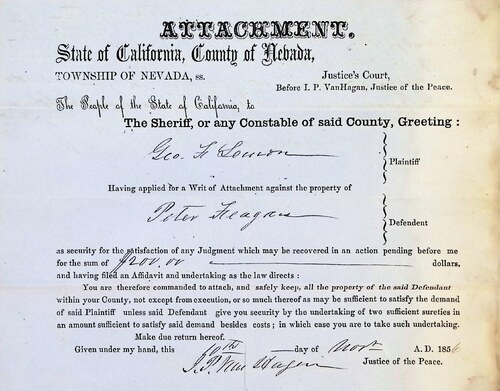 ATTACHMENT.
State of California, County of Nevada,
TOWNSHIP OF NEVADA, ss.
Justice's Court,
Before I. P. VanHagan, Justice of the Peace.
The People of the State of California, to
The Sheriff, or any Constable of said County, Greeting :
Geo. F.
Plaintiff
Having applied for a Writ of Attachment against the property of
Peter Feagans
Defendent
as security for the satisfaction of any Judgment which may be recovered in an action pending before me
for the sum of $200.00 dollars,
and having filed an Affidavit and undertaking as the law directs :
You are therefore commanded to attach, and safely keep, all the property of the said Defendant
within your County, not except from execution, or so much thereof as may be sufficient to satisfy the demand
of said Plaintiff unless said Defendant give you security by the undertaking of two sufficient sureties in
an amount sufficient to satisfy said demand besides costs ; in which case you are to take such undertaking.
Make due return hereof.
Given under my hand, this 10th day of Novr A. D. 185
I. P. Van Hagen Justice of the Peace.